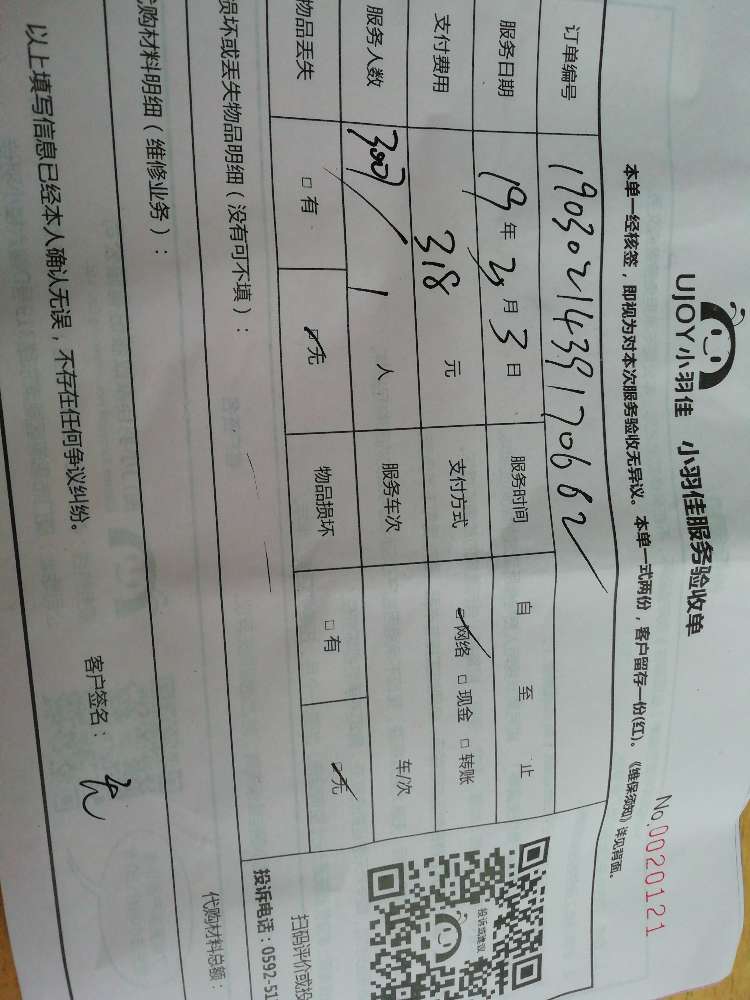 UJOY小羽佳 小羽佳服务验收单
No.0020121
本单一经核签，即视为对本次服务验收无异议。本单一式两份，客户留存一份(红)。《维保须知》详见背面。
订单编号 1903021439170682
服务日期 19年 3月 3日 服务时间 自 至 止
支付费用 318 元 支付方式 ☑网络 □现金 □转账
服务人数 1 人 服务车次 车/次
物品丢失 □有 ☑无 物品损坏 □有 ☑无
损坏或丢失物品明细（没有可不填）：
购材料明细（维修业务）：
代购材料总额：
以上填写信息已经本人确认无误，不存在任何争议纠纷。
客户签名：
投诉或建议
扫码评价或投
投诉电话：0592-51